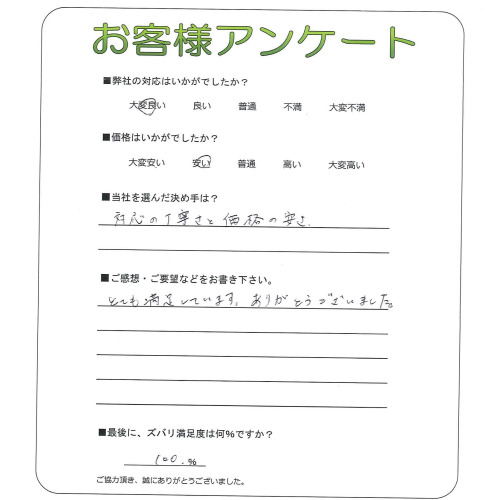 お客様アンケート
■弊社の対応はいかがでしたか？
大変良い 良い 普通 不満 大変不満
■価格はいかがでしたか？
大変安い 安い 普通 高い 大変高い
■当社を選んだ決め手は？
対応の丁寧さと価格の安さ.
■ご感想・ご要望などをお書き下さい。
とても満足しています。ありがとうございました。
■最後に、ズバリ満足度は何%ですか？
100.%
ご協力頂き、誠にありがとうございました。